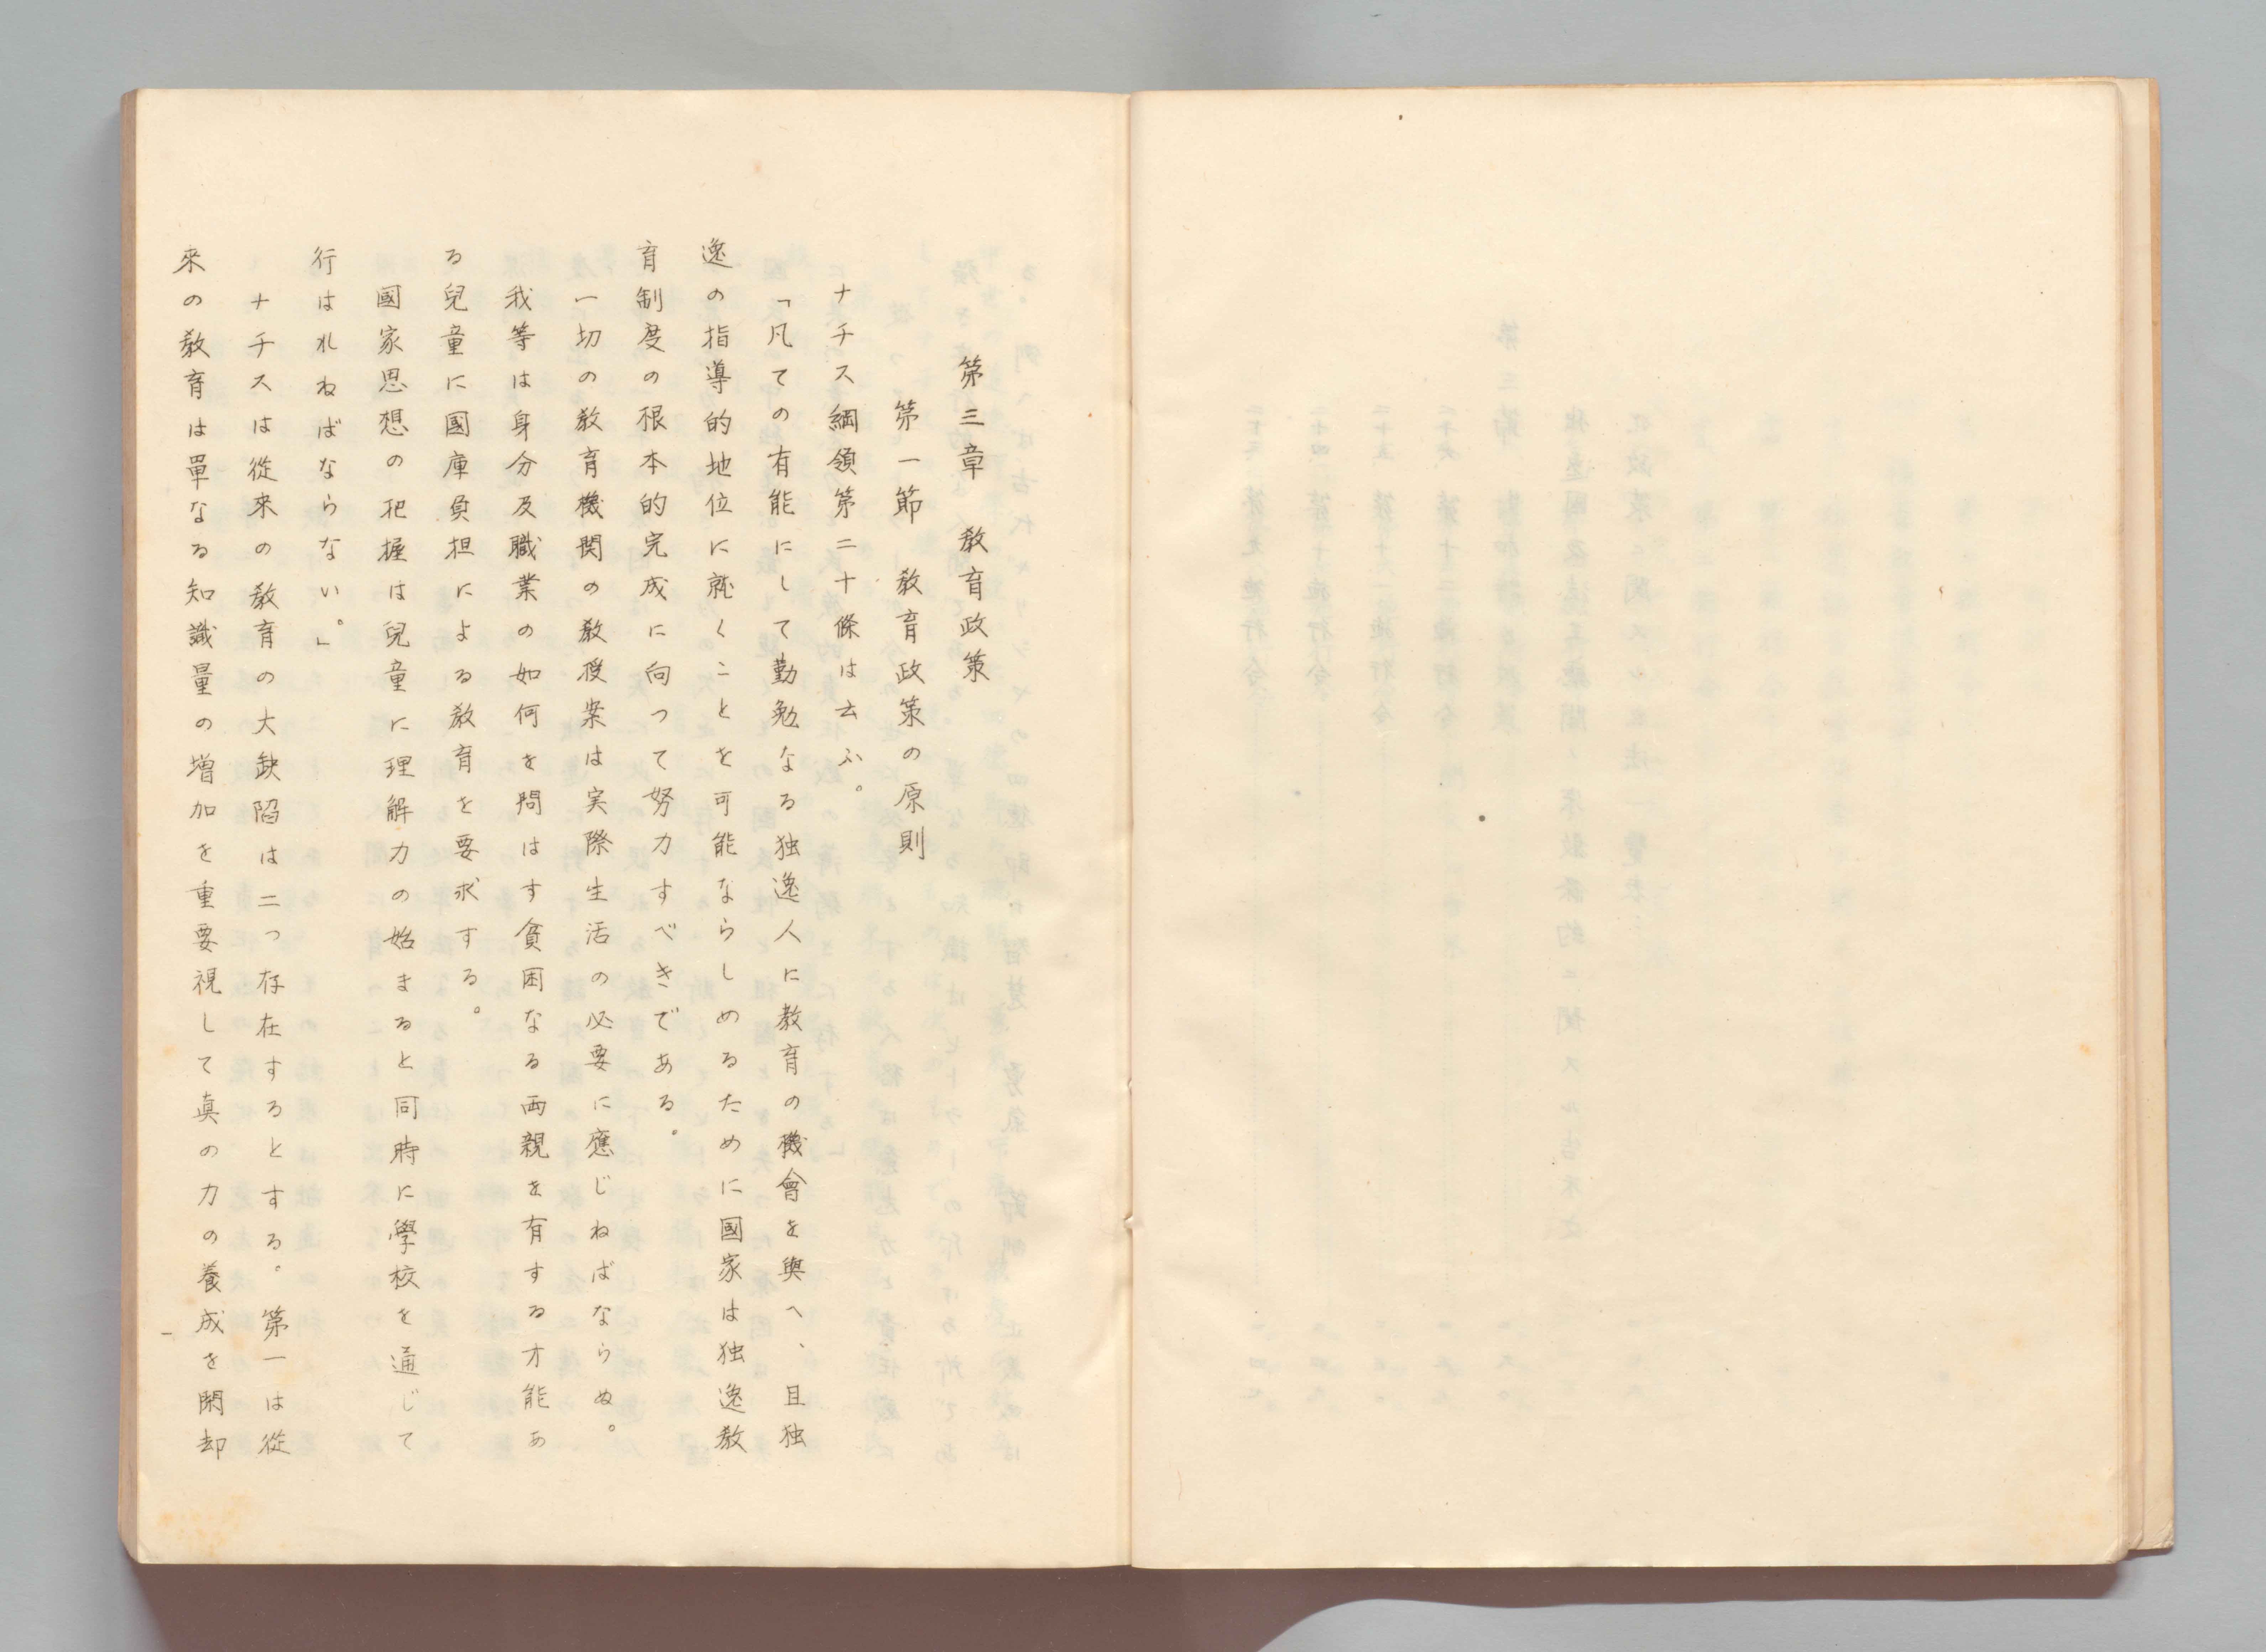 第三章　教育政策
第一節　教育政策の原則
ナチス綱領第二十條は云ふ。
「凡ての有能にして勤勉なる独逸人に教育の機會を與へ、且独
逸の指導的地位に就くことを可能ならしめるために國家は独逸教
育制度の根本的完成に向つて努力すべきである。
一切の教育機関の教授案は実際生活の必要に應じねばならぬ。
我等は身分及職業の如何を問はす貧困なる両親を有する才能あ
る兒童に國庫負担による教育を要求する。
國家思想の把握は兒童に理解力の始まると同時に學校を通じて
行はれねばならない。」
ナチスは從来の教育の大缺陷は二つ存在するとする。第一は從
來の教育は單なる知識量の増加を重要視して真の力の養成を閑却
一